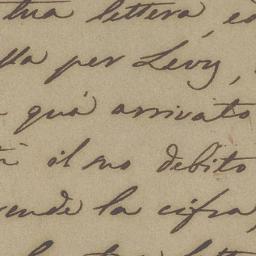 tua lettera, ed
per Levy,
quà arrivato
il suo debito
ende la cifra,